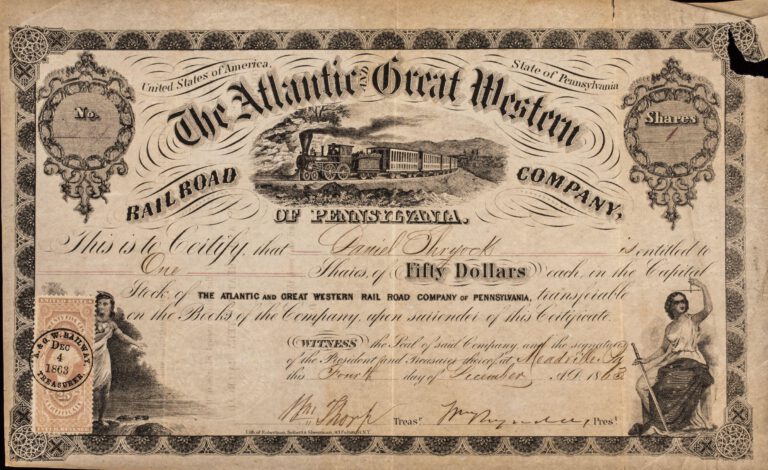 United States of America, State of Pennsylvania
No. Shares
1
The Atlantic AND Great Western
RAIL ROAD COMPANY,
OF PENNSYLVANIA.
This is to Certify, that Daniel Shryock is entitled to
One Shares, of Fifty Dollars each, in the Capital
Stock of THE ATLANTIC AND GREAT WESTERN RAIL ROAD COMPANY OF PENNSYLVANIA, transferable
on the Books of the Company, upon surrender of this Certificate.
WITNESS the Seal of said Company and the signatures
of the President and Treasurer thereof at Meadville Pa
this Fourth day of December AD 1863
Treasr. Wm Reynolds, Prest.
UNITED STATES
A. & G. W. RAILWAY.
DEC
4
1863
TREASURER.
25